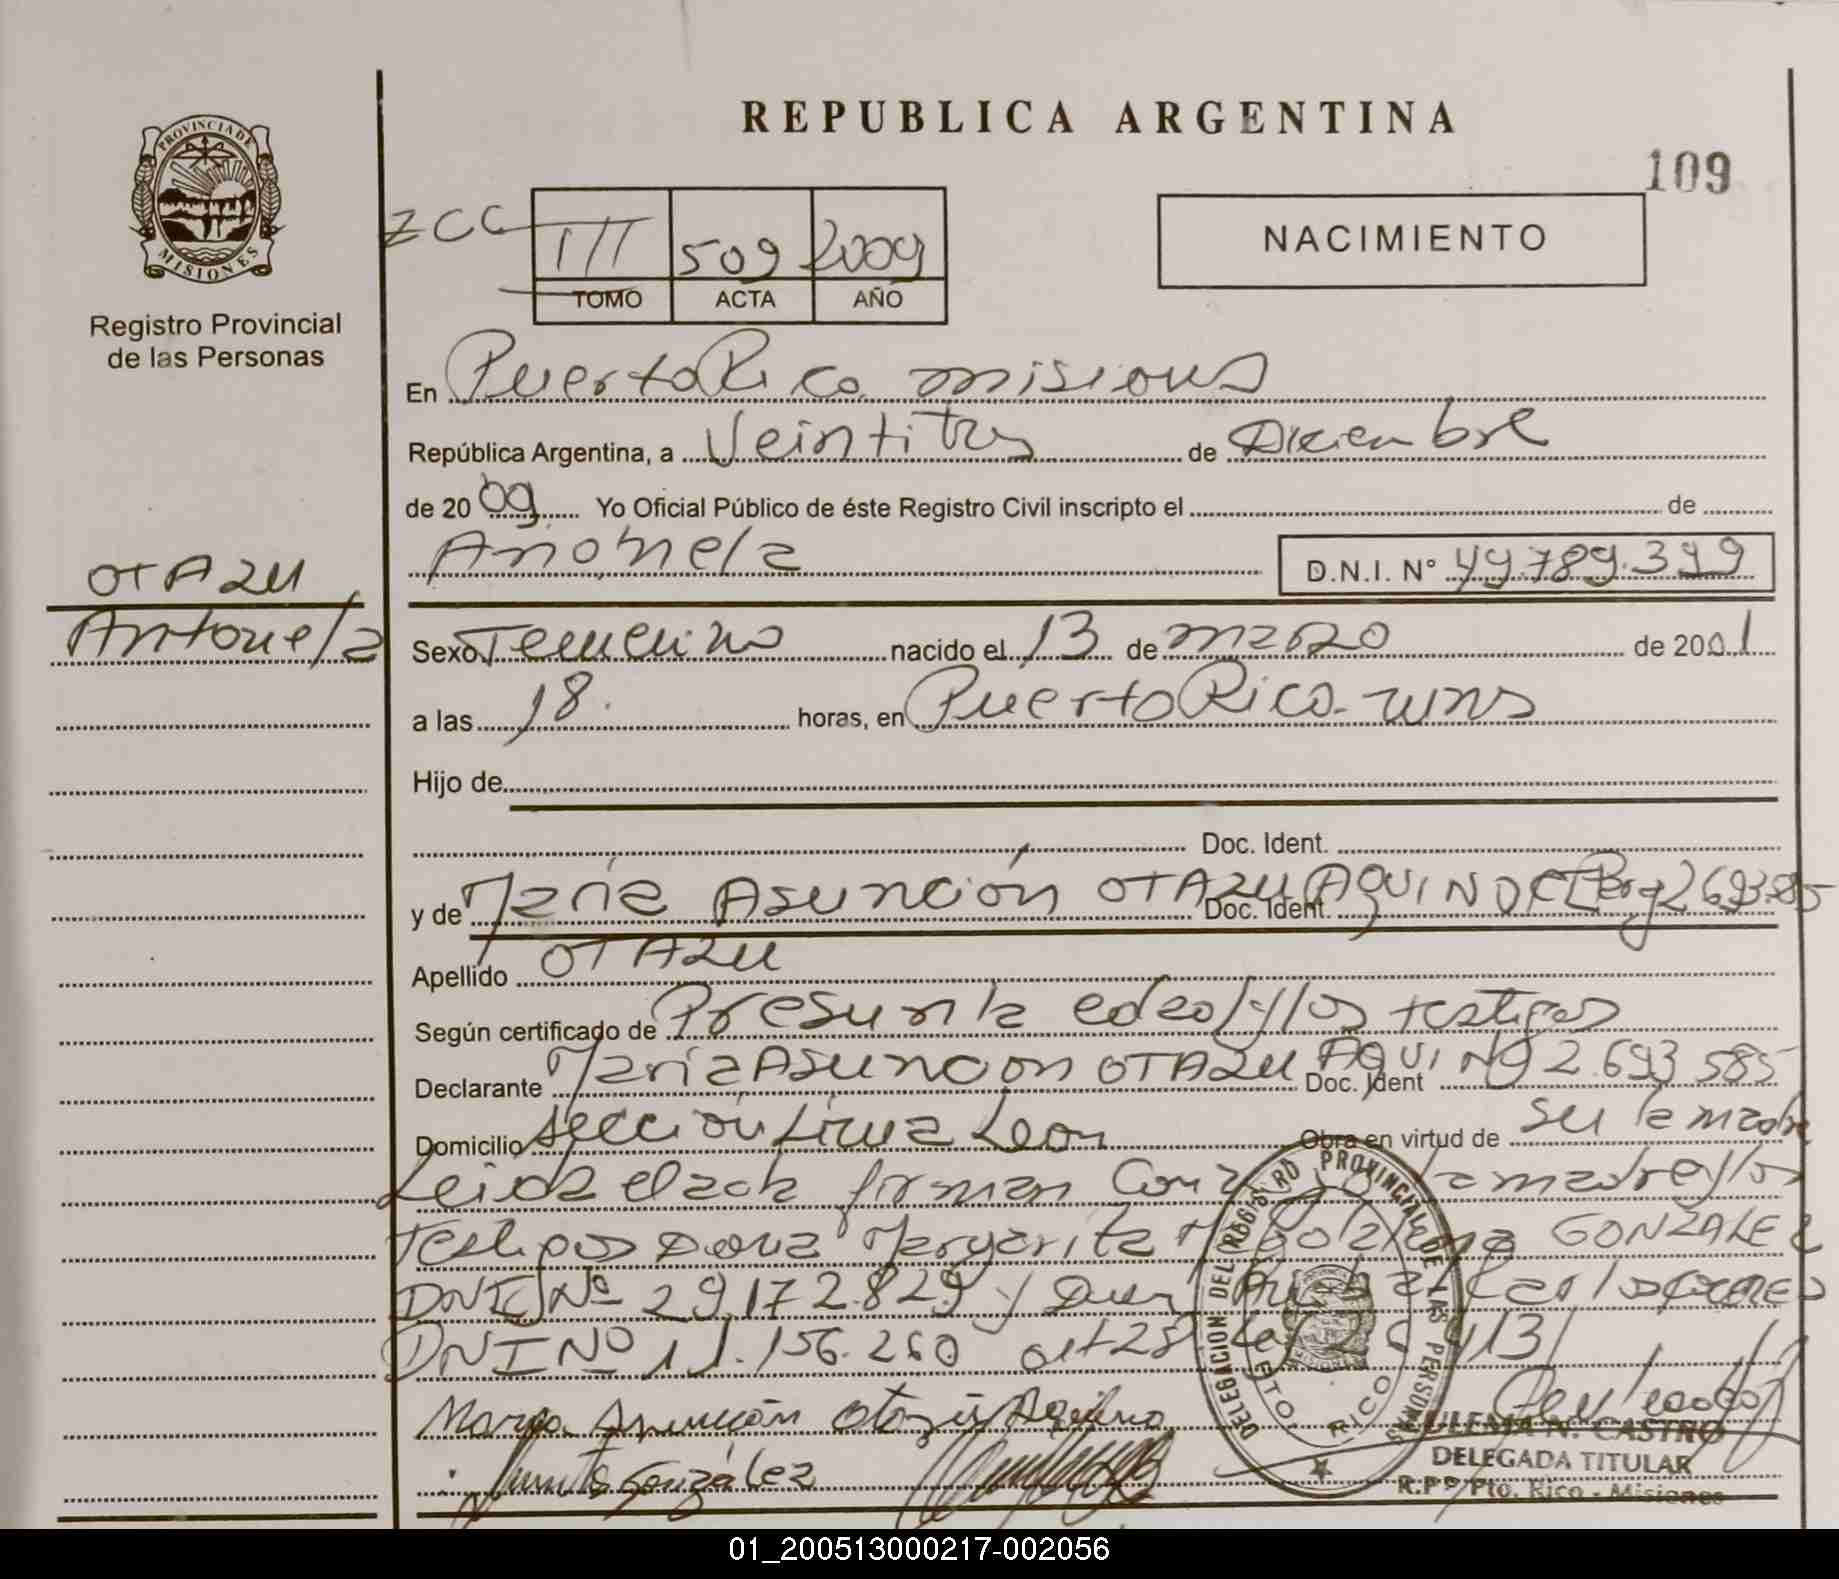 REPUBLICA ARGENTINA
109
PROVINCIA DE MISIONES
Registro Provincial
de las Personas
ZCC
III 509 2009
TOMO ACTA AÑO
NACIMIENTO
En Puerto Rico misiones
República Argentina, a Veintitres de Diciembre
de 2009 Yo Oficial Público de éste Registro Civil inscripto el de
D.N.I. N° 49.789.399
OTAZU
Antonela
Sexo Femenino nacido el 13 de marzo de 2001
a las 18. horas, en Puerto Rico mns
Hijo de
Doc. Ident.
y de María Asunción OTAZU AQUINO Doc. Ident. 2693585
Apellido OTAZU
Según certificado de Presunta edad y los testigos
Declarante María Asunción OTAZU AQUINO Doc. Ident 2.693 585
Domicilio sección Línea Leon Obra en virtud de ser la madre
Leida el acta firman la madre y los
testigos Doña Margarita GONZALEZ
DNI Nº 29.172.829 y Don
DNI Nº 11.156.260
María Asunción Otazú Aquino
González
DELEGACION DEL REGISTRO PROVINCIAL DE LAS PERSONAS
PTO. RICO
N. CASTRO
DELEGADA TITULAR
R.P.P. Pto. Rico - Misiones
01_200513000217-002056